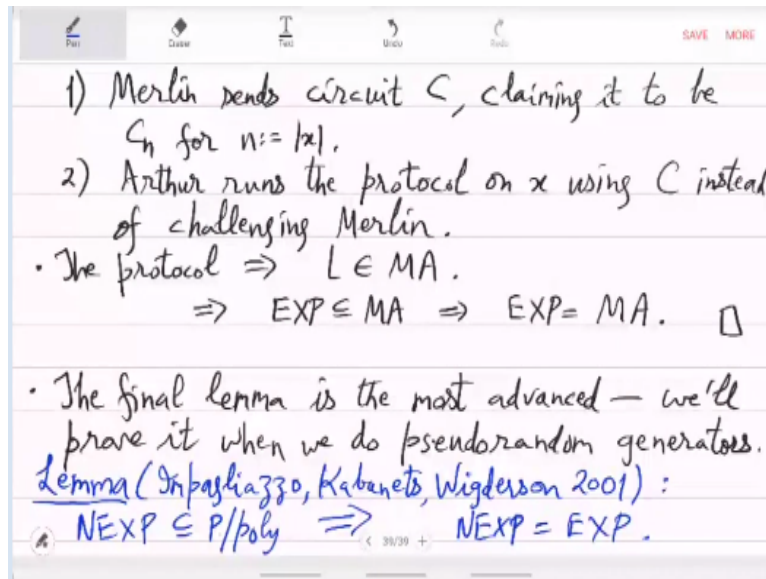 Pen Eraser Text Undo Redo SAVE MORE
1) Merlin sends circuit C, claiming it to be
Cn for n:= |x|.
2) Arthur runs the protocol on x using C instead
of challenging Merlin.
• The protocol ⇒ L ∈ MA.
⇒ EXP ⊆ MA ⇒ EXP = MA. □
• The final lemma is the most advanced — we'll
prove it when we do pseudorandom generators.
Lemma (Impagliazzo, Kabanets, Wigderson 2001) :
NEXP ⊆ P/poly ⇒ NEXP = EXP.
< 39/39 +